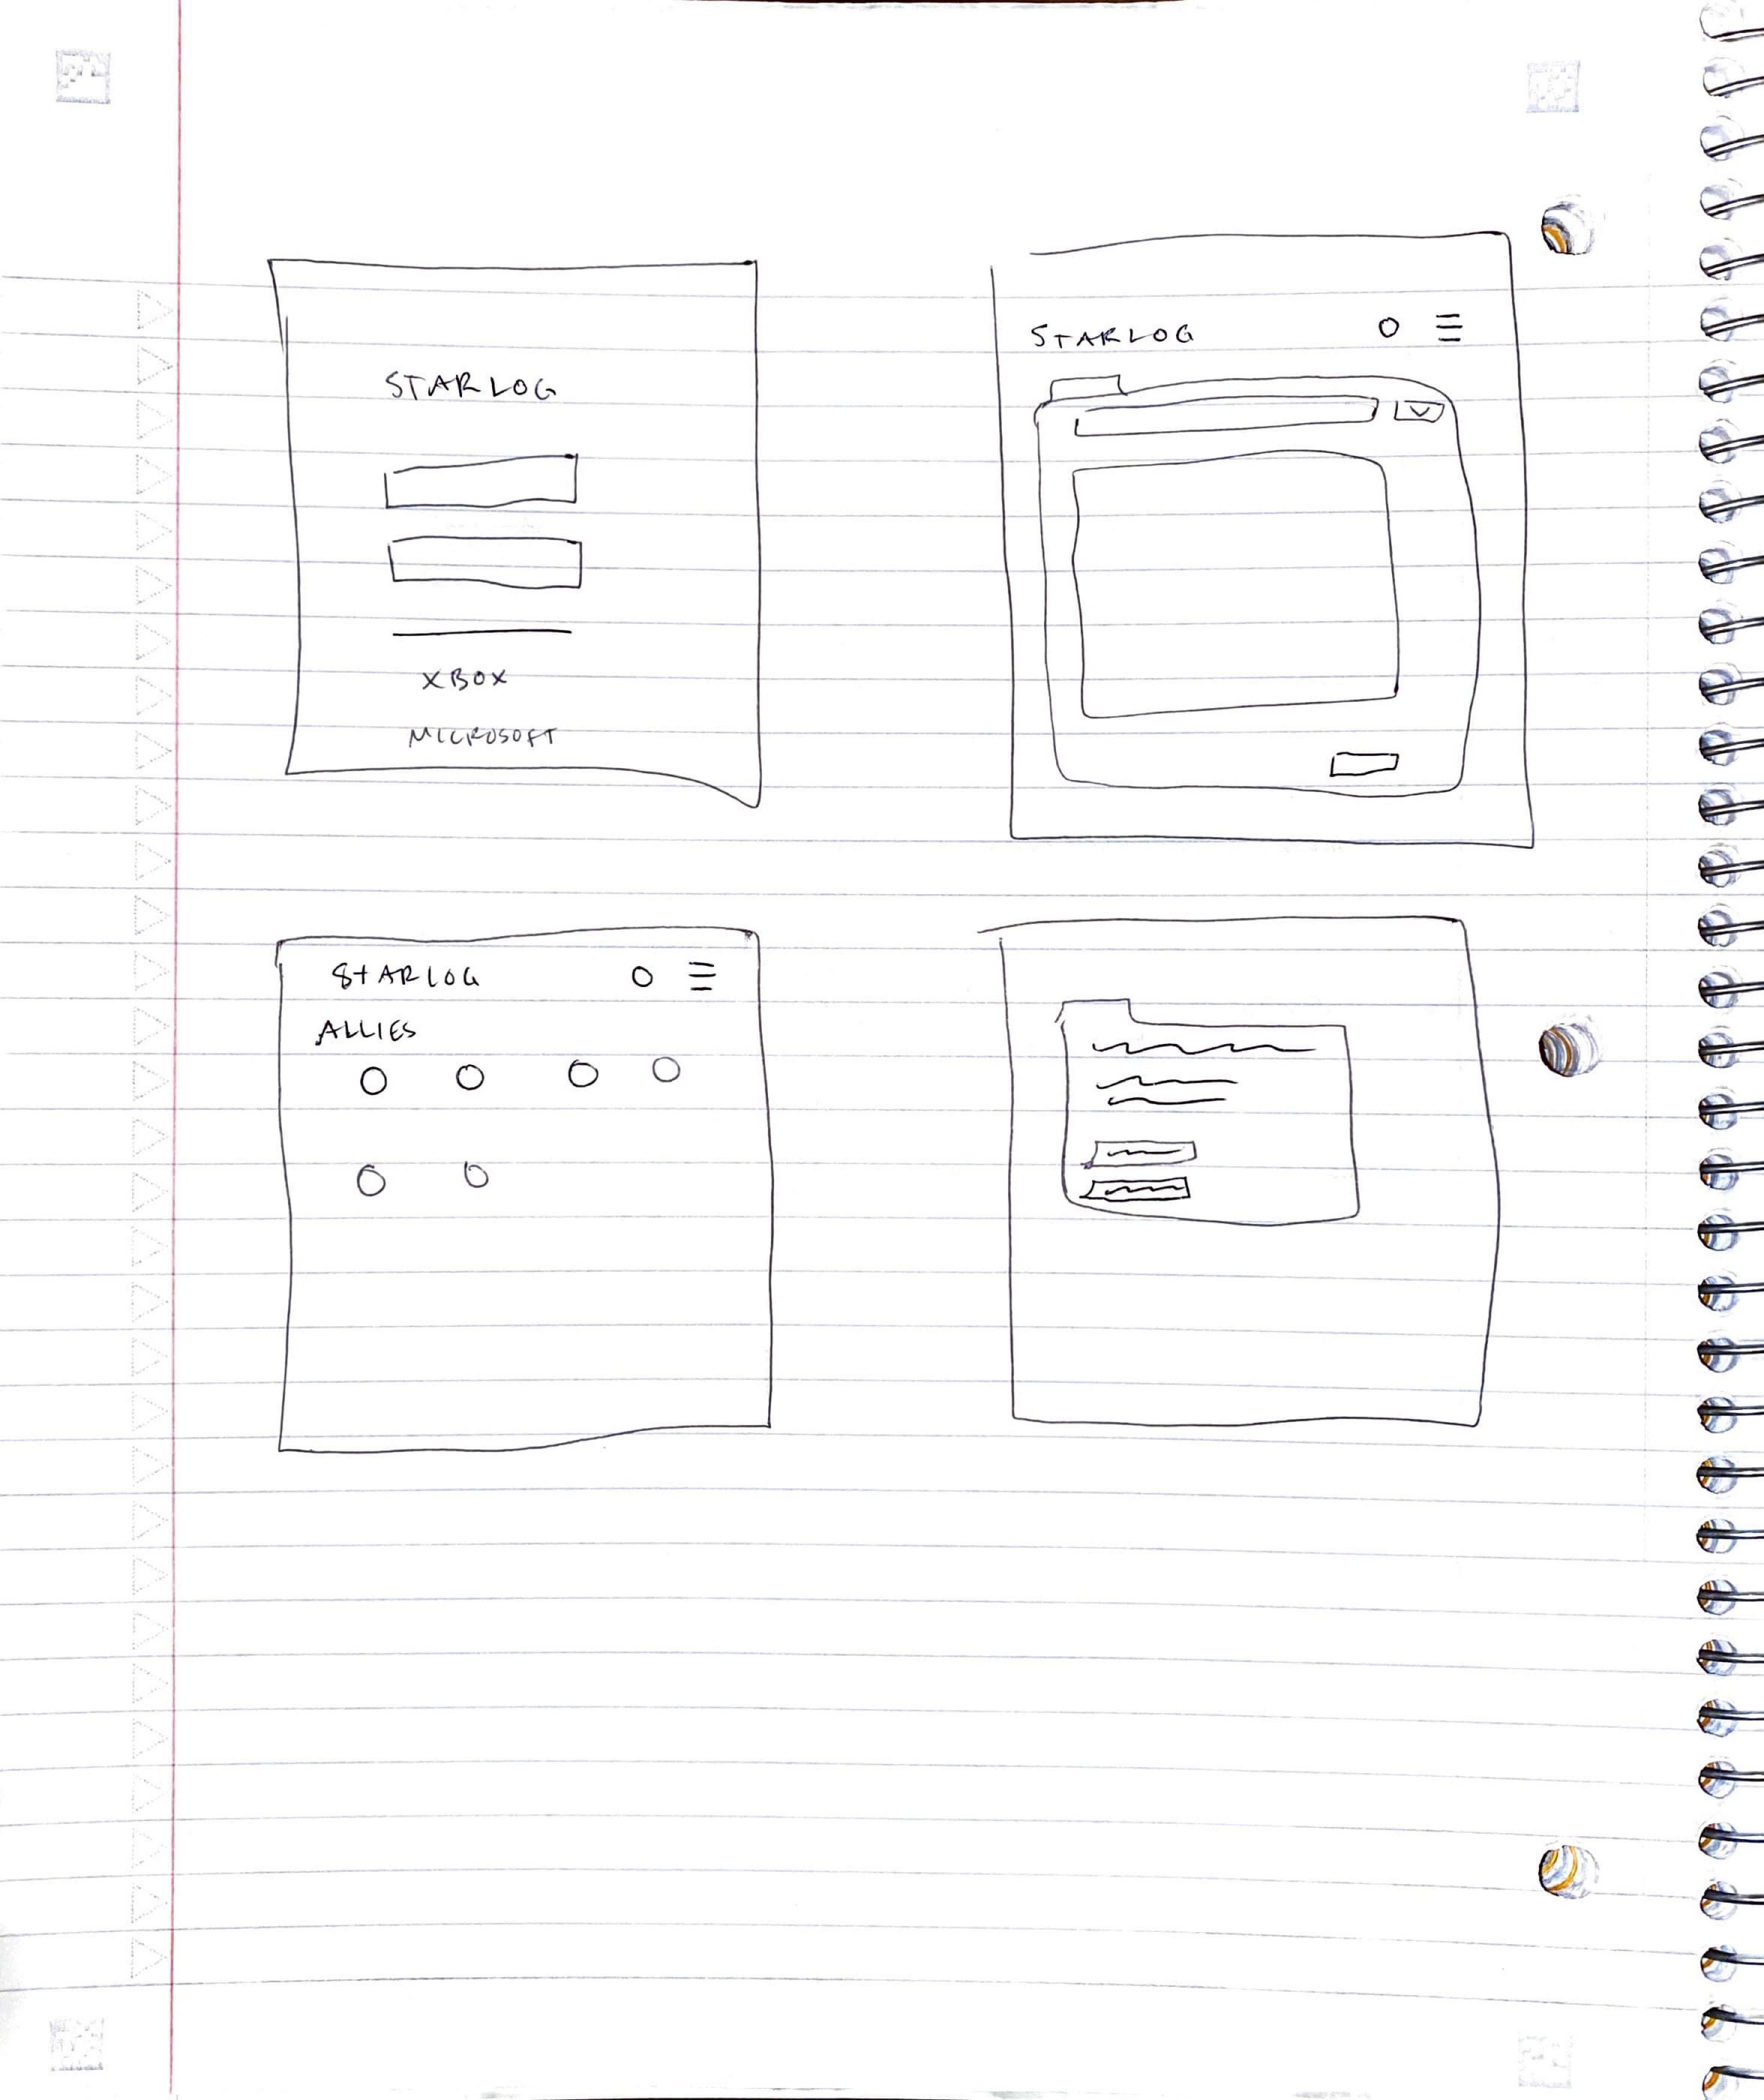 STARLOG
XBOX
MICROSOFT
STARLOG
STARLOG
ALLIES